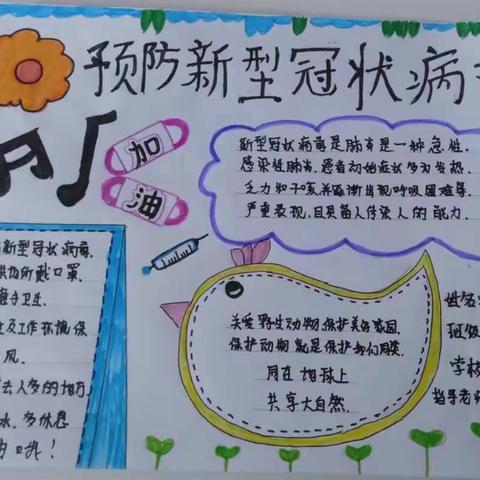 预防新型冠状病
加
油
新型冠状病毒是肺炎是一种急性.
感染性肺炎.患者初始症状多为发热.
乏力和干咳.并逐渐出现呼吸困难等.
严重表现.且具备人传染人的能力.
新型冠状病毒.
戴口罩.
卫生.
及工作环境保
风.
去人多的地方.
水.多休息
哦!
关爱野生动物.保护美好家园.
保护动物就是保护我们
同在地球上
共享大自然.
姓名
班级
学校
指导老师